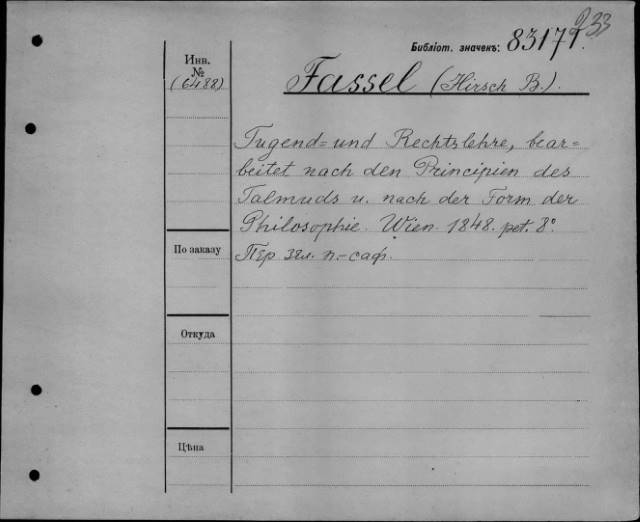 233
Библіот. значекъ: 83171.
Инв.
№
(6488)
Fassel (Hirsch B.).
Tugend= und Rechtslehre, bear=
beitet nach den Principien des
Talmuds u. nach der Form der
Philosophie. Wien. 1848. pet. 8°
Пер згл. п.-саф.
По заказу
Откуда
Цѣна